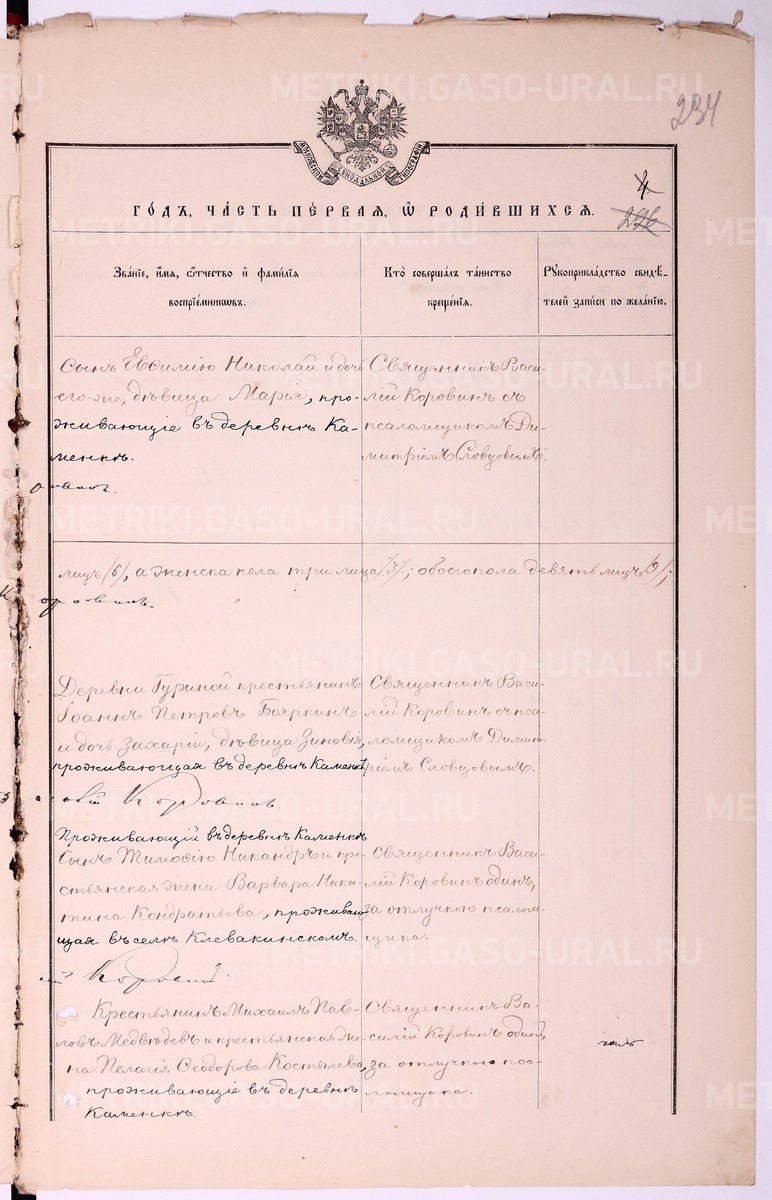 234
МОСКОВСКОЙ СѴНОДАЛЬНОЙ ТИПОГРАФІИ
4
226
ГОДЪ, ЧАСТЬ ПЕРВАЯ, Ѡ РОДИВШИХСЯ.
Званіе, имя, ѻтчество и фамилія
воспріемниковъ.
Кто совершалъ таинство
крещенія.
Рукоприкладство свидѣ-
телей записи по желанію.
сынъ Евѳимію Николай и дочь
его-же, дѣвица Марія, про-
живающіе въ деревнѣ Ка-
менкѣ.
Священникъ Васи-
лій Коровинъ съ
псаломщикомъ Ди-
митріемъ Словцовымъ.
лицъ /6/, а женска пола три лица /3/.; обоего пола девять лицъ /9/;
оровинъ.
Деревни Гуриной крестьянинъ
Іоаннъ Петровъ Бояркинъ
и дочь Захарій, дѣвица Зиновія,
проживающая въ деревнѣ Каменкѣ
Священникъ Васи-
лій Коровинъ съ пса-
ломщикомъ Димит-
ріемъ Словцовымъ.
Коровинъ
Проживающій въ деревнѣ Каменкѣ
сынъ Тимоѳію Никандръ и кре-
стьянская жена Варвара Ники-
тина Кондратьева, проживаю-
щая въ селѣ Клевакинскомъ.
Священникъ Васи-
лій Коровинъ одинъ,
за отлучкою псалом-
щика.
Коровинъ
Крестьянинъ Михаилъ Пав-
ловъ Медвѣдевъ и крестьянская же-
на Пелагія Ѳеодорова Костылева,
проживающіе въ деревнѣ
Каменкѣ.
Священникъ Ва-
силій Коровинъ одинъ,
за отлучкою пса-
ломщика.
METRIKI.GASO-URAL.RU